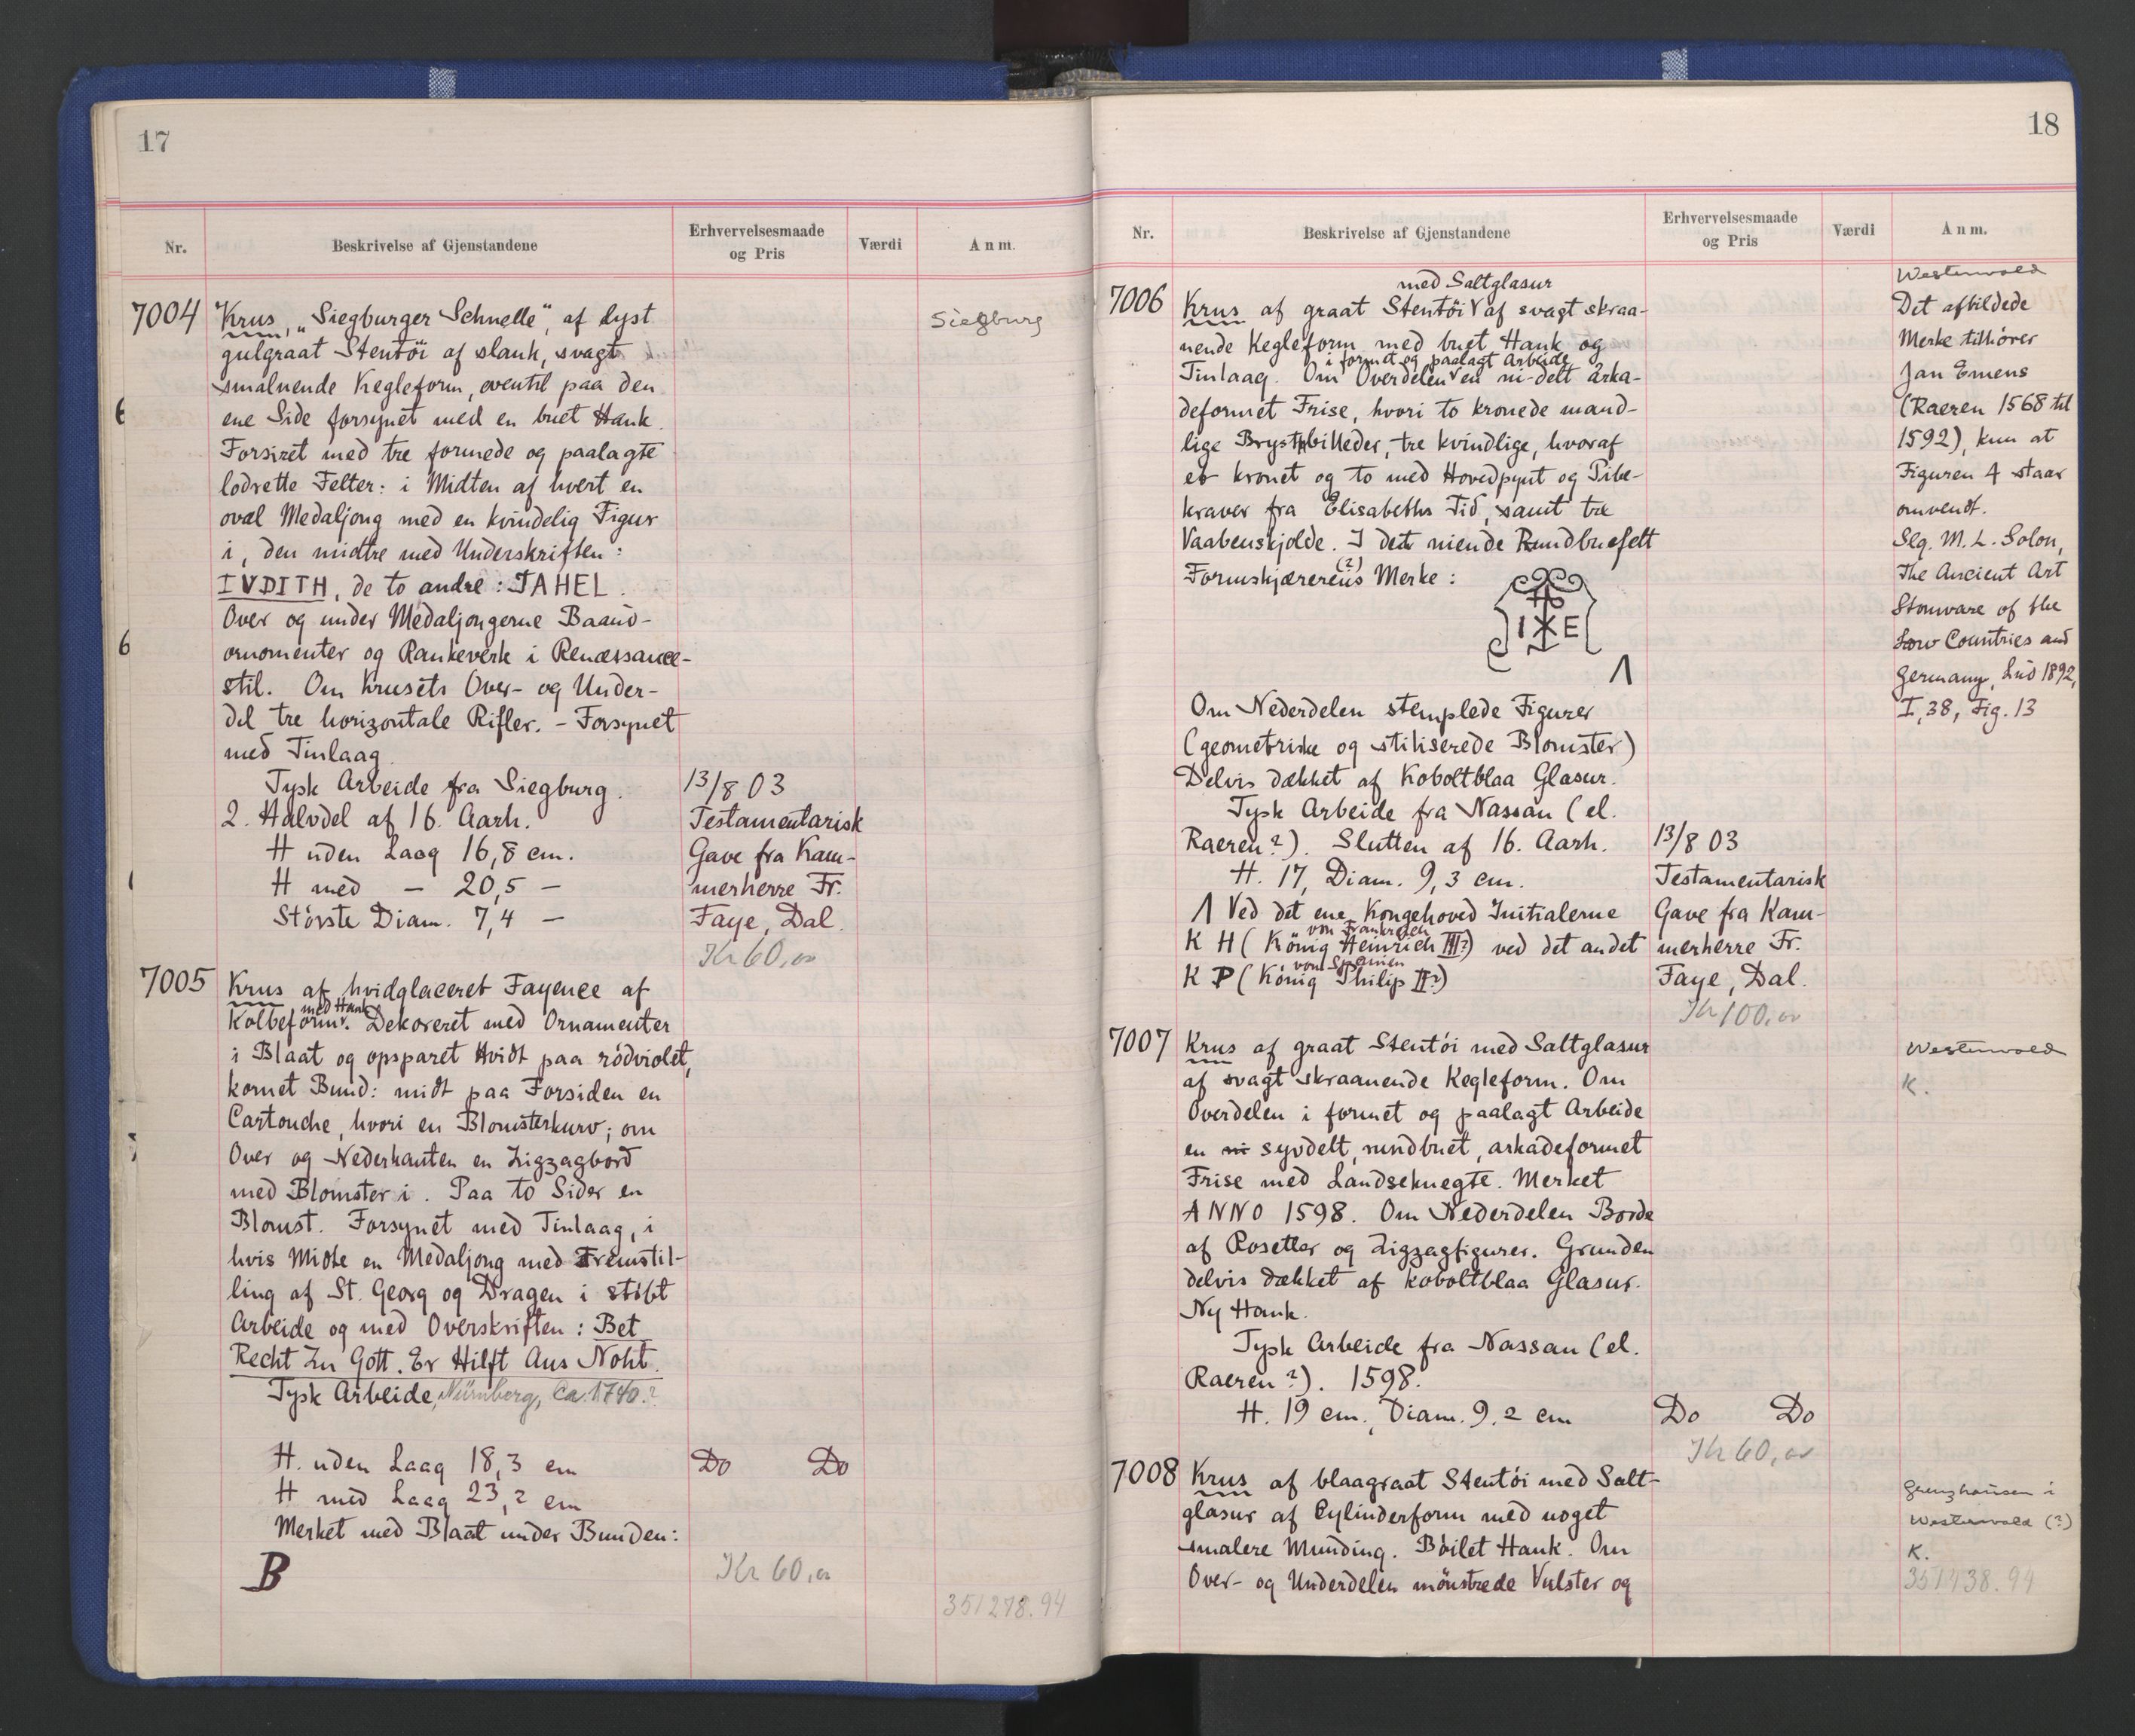 17
Nr.
Beskrivelse af Gjenstandene
Erhvervelsesmaade
og Pris
Værdi
Anm.
7004
Krus, „Siegburger Schnelle", af lyst
Siegburg
gulgraat Stentöi af slank, svagt
smalnende Kegleform, oventil paa den
ene Side forsynet med en buet Hank.
Forsiret med tre formede og paalagte
lodrette Felter: i Midten af hvert en
oval Medaljong med en kvindelig Figur
i, den midtre med Underskriften:
IVDITH, de to andre: JAHEL.
Over og under Medaljongerne Baand-
ornomenter og Rankeverk i Renæssance-
stil. Om Krusets Over- og Under-
del tre horizontale Rifler. – Forsynet
med Tinlaag.
Tysk Arbeide fra Siegburg.
13/8 03
2. Halvdel af 16. Aarh.
Testamentarisk
H uden Laag 16,8 cm.
Gave fra Kam-
H med — 20,5 —
merherre Fr.
Störste Diam. 7,4 —
Faye, Dal.
Kr 60,00
7005
Krus af hvidglaceret Fayence af
med Hank
Kolbeform v. Dekoreret med Ornamenter
i Blaat og opsparet Hvidt paa rödviolet,
kornet Bund: midt paa Forsiden en
Cartouche, hvori en Blomsterkurv; om
Over og Nederkanten en Zigzagbord
med Blomster i. Paa to Sider en
Blomst. Forsynet med Tinlaag, i
hvis Midte en Medaljong med Fremstil-
ling af St. Georg og Dragen i stöbt
Arbeide og med Overskriften: Bet
Recht Zu Gott. Er Hilft Aus Noht.
Tysk Arbeide, Nürnberg, Ca. 1740.?
H. uden Laag 18,3 cm
Do Do
H med Laag 23,2 cm
Merket med Blaat under Bunden:
B
Kr 60,00
351278.94
18
Nr.
Beskrivelse af Gjenstandene
Erhvervelsesmaade
og Pris
Værdi
Anm.
7006
med Saltglasur
Krus af graat Stentöi v af svagt skraa-
nende Kegleform med buet Hank og
i formet og paalagt Arbeide
Tinlaag. Om Overdelen v en ni-delt arka-
deformet Frise, hvori to kronede mand-
lige Brystbilleder, tre kvindlige, hvoraf
et kronet og to med Hovedpynt og Pibe-
kraver fra Elisabeths Tid, samt tre
Vaabenskjolde. I det niende Rundbuefelt
(?)
Formskjærerens Merke:
I E
1
Om Nederdelen stemplede Figurer
(geometriske og stiliserede Blomster)
Delvis dækket af Koboltblaa Glasur.
Tysk Arbeide fra Nassau (el.
Raeren?). Slutten af 16. Aarh.
H. 17, Diam. 9,3 cm.
1 Ved det ene Kongehoved Initialerne
von Frankreich
K H (König Heinrich III?) ved det andet
von Spanien
K P (König Philip II?)
13/8 03
Testamentarisk
Gave fra Kam-
merherre Fr.
Faye, Dal.
Kr 100,00
Westerwald
Det afbildede
Merke tilhörer
Jan Emens
(Raeren 1568 til
1592), kun at
Figuren 4 staar
omvendt.
Slg. M. L. Solon,
The Ancient Art
Stonvare of the
Low Countries and
Germany, Lnd 1892,
I, 38, Fig. 13
7007
Krus af graat Stentöi med Saltglasur
af svagt skraanende Kegleform. Om
Overdelen i formet og paalagt Arbeide
en ni syvdelt, rundbuet, arkadeformet
Frise med Landseknegte. Merket
ANNO 1598. Om Nederdelen Borde
af Rosetter og Zigzagfigurer. Grunden
delvis dækket af koboltblaa Glasur.
Ny Hank.
Tysk Arbeide fra Nassau (el.
Raeren?). 1598.
H. 19 cm, Diam. 9,2 cm
Do Do
Kr 60,00
Westerwald
K.
7008
Krus af blaagraat Stentöi med Salt-
glasur af Cylinderform med noget
smalere Munding. Böilet Hank. Om
Over- og Underdelen mönstrede Vulster og
Grenzhausen i
Westerwald (?)
K.
351438.94